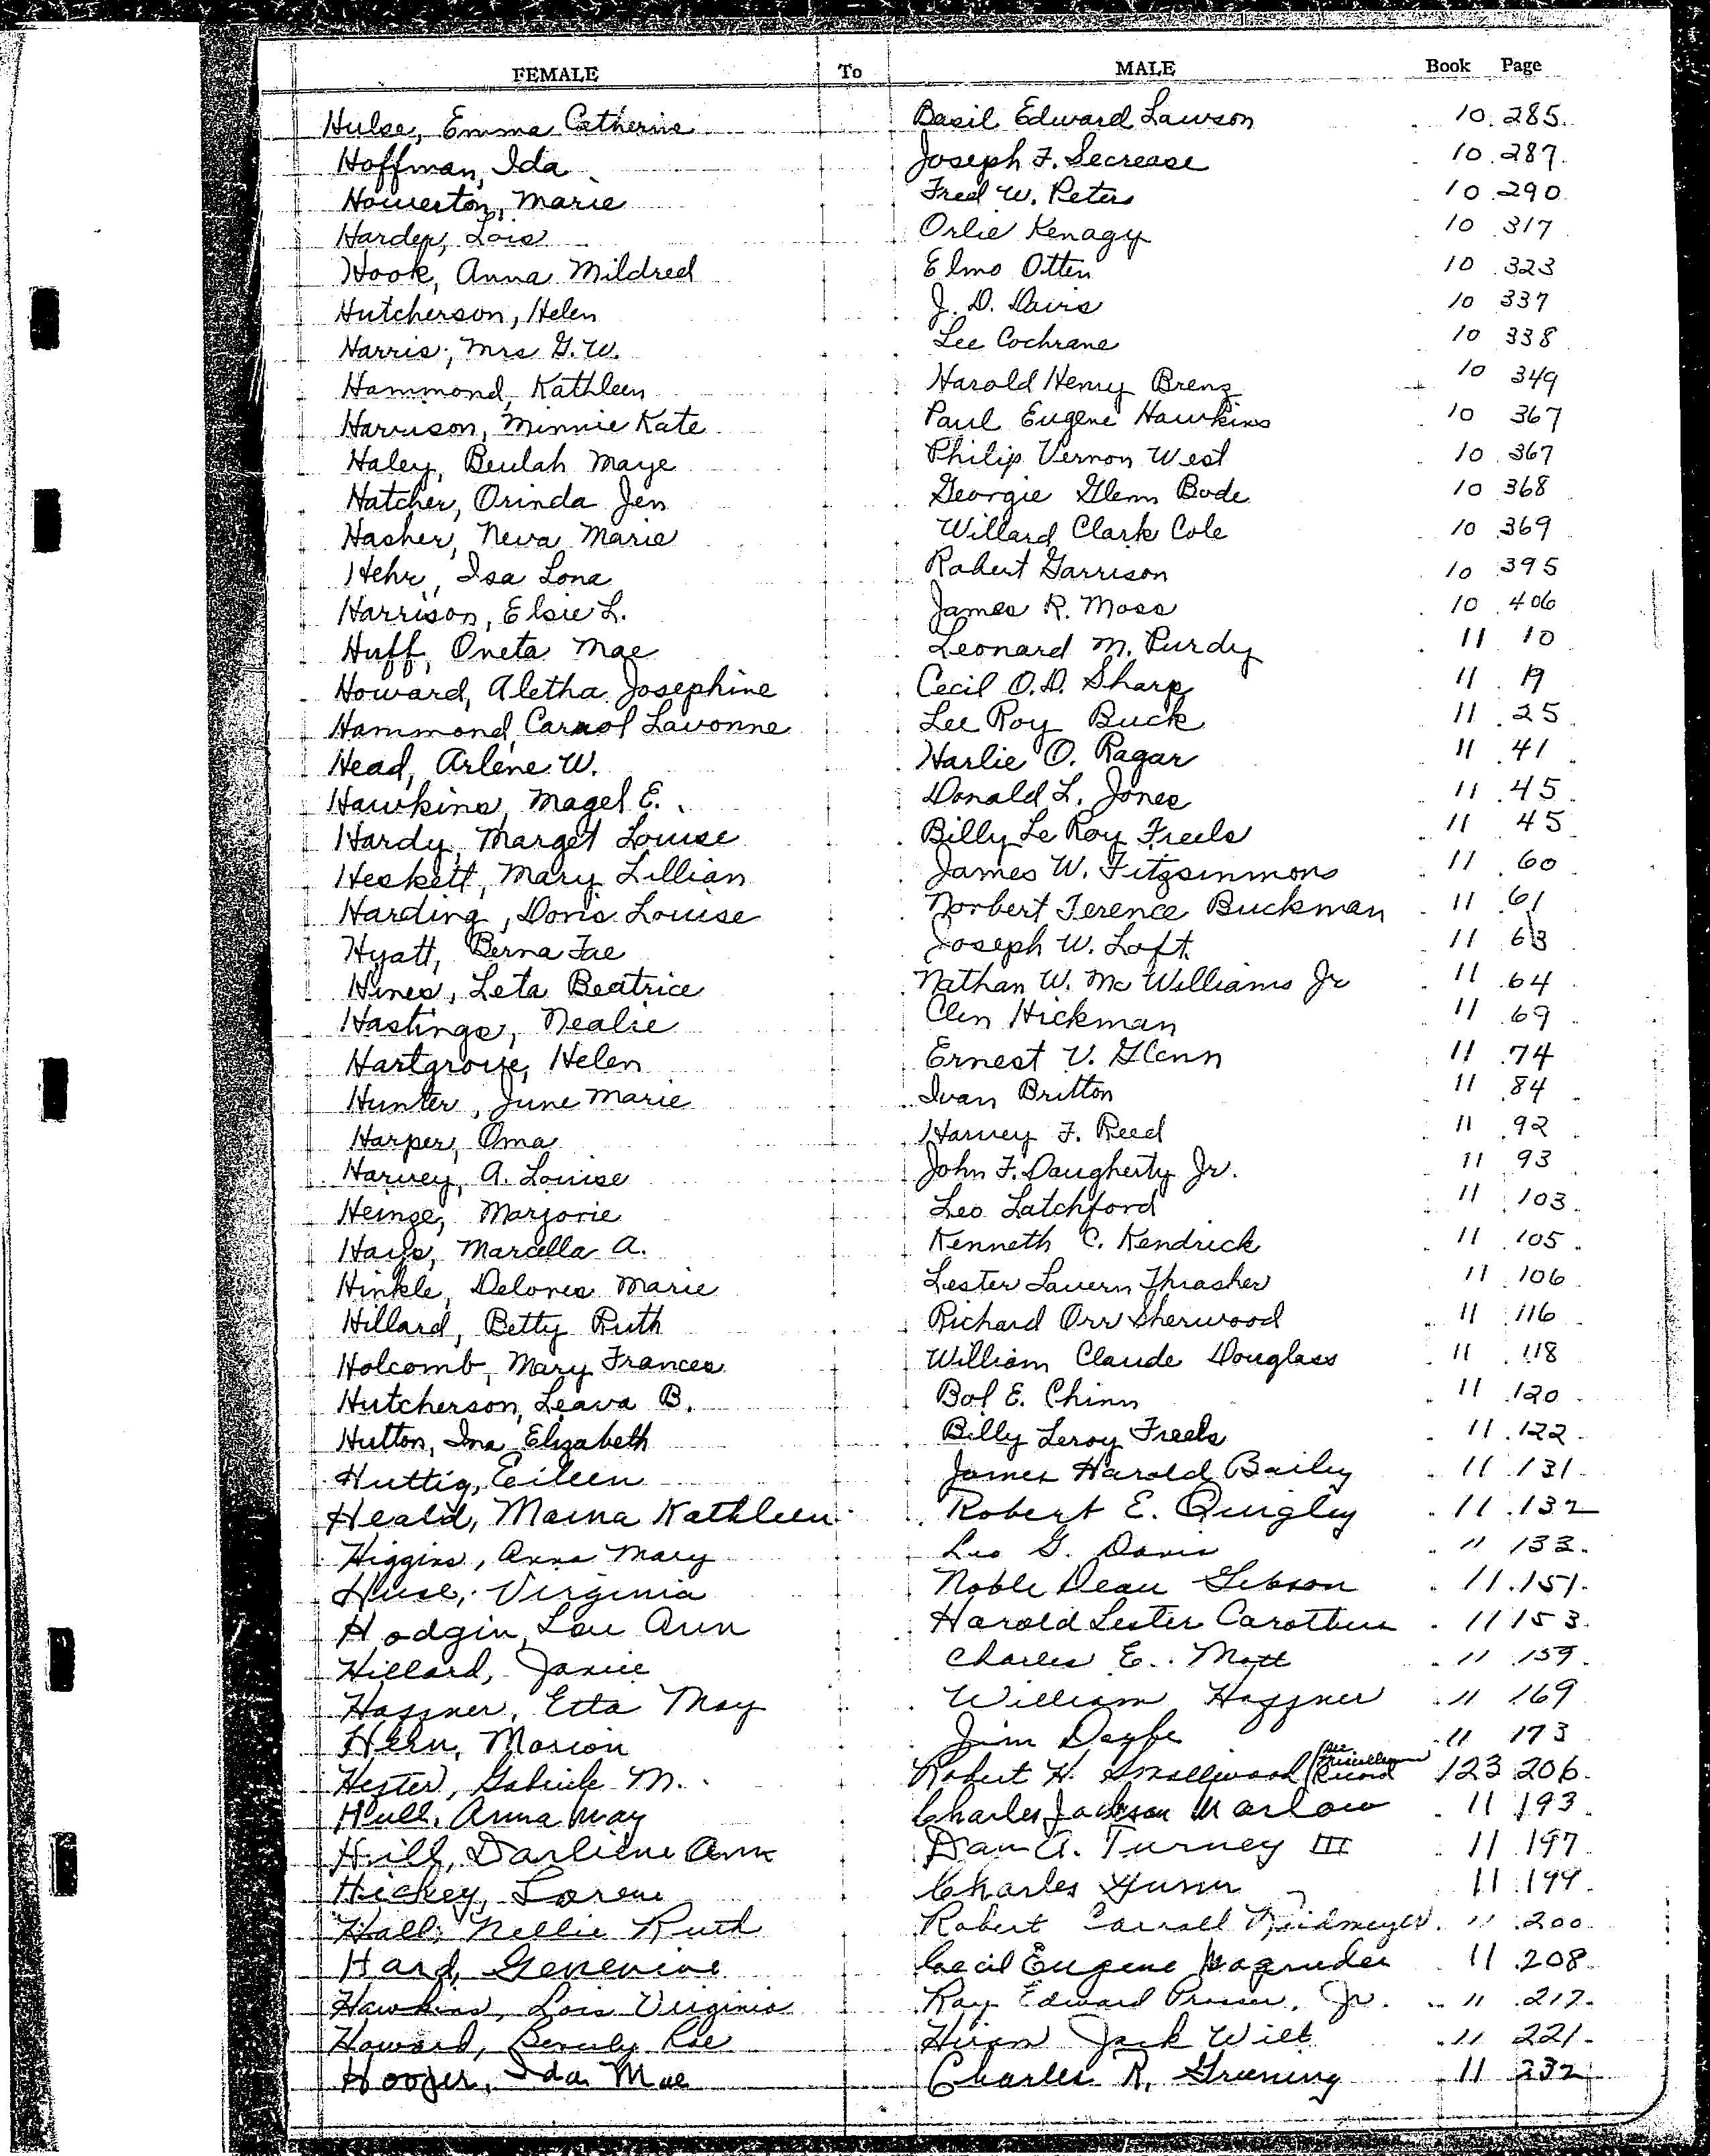 FEMALE To MALE Book Page
Hulse, Emma Catherine Basil Edward Lawson 10 285
Hoffman, Ida Joseph F. Secrease 10 287
Howerton, Marie Fred W. Peters 10 290
Harder, Lois Orlie Kenagy 10 317
Hook, Anna Mildred Elmo Otten 10 323
Hutcherson, Helen J. D. Davis 10 337
Harris, Mrs G. W. Lee Cochrane 10 338
Hammond, Kathleen Harold Henry Brenz 10 349
Harrison, Minnie Kate Paul Eugene Hawkins 10 367
Haley, Beulah Maye Philip Vernon West 10 367
Hatcher, Orinda Jen Georgie Glenn Bode 10 368
Hasher, Neva Marie Willard Clark Cole 10 369
Hehr, Isa Lona Robert Garrison 10 395
Harrison, Elsie L. James R. Moss 10 406
Huff, Oneta Mae Leonard M. Purdy 11 10
Howard, Aletha Josephine Cecil O. D. Sharp 11 19
Hammond, Carrol Lavonne Lee Roy Buck 11 25
Head, Arlene W. Harlie O. Ragar 11 41
Hawkins, Magel E. Donald L. Jones 11 45
Hardy, Marget Louise Billy Le Roy Freels 11 45
Heskett, Mary Lillian James W. Fitzsimmons 11 60
Harding, Doris Louise Norbert Terence Buckman 11 61
Hyatt, Berna Fae Joseph W. Loft 11 63
Hines, Leta Beatrice Nathan W. Mc Williams Jr 11 64
Hastings, Nealie Clen Hickman 11 69
Hartgrove, Helen Ernest V. Glenn 11 74
Hunter, June Marie Ivan Britton 11 84
Harper, Oma Harvey F. Reed 11 92
Harvey, A. Louise John F. Daugherty Jr. 11 93
Heinze, Marjorie Leo Latchford 11 103
Hays, Marcella A. Kenneth C. Kendrick 11 105
Hinkle, Delores Marie Lester Lavern Thrasher 11 106
Hillard, Betty Ruth Richard Orr Sherwood 11 116
Holcomb, Mary Frances William Claude Douglass 11 118
Hutcherson, Leava B. Bol E. Chinn 11 120
Hutton, Ina Elizabeth Billy Leroy Freels 11 122
Huttig, Eileen James Harold Baily 11 131
Heald, Maena Kathleen Robert E. Quigley 11 132
Higgins, Anna Mary Leo G. Davis 11 133
Huse, Virginia Noble Dean Gibson 11 151
Hodgin, Lou Ann Harold Lester Carothers 11 153
Hillard, Janice Charles E. Mott 11 159
Haffner, Etta May William Haffner 11 169
Hern, Marion Jim 11 173
Hester, M. Robert H. Smallwood (see Record 123 206
Hull, Anna May Charles Jackson Marlow 11 193
Hill, Darliene Ann Dan A. Turney III 11 197
Hickey, Lorene Charles 11 199
Hall, Nellie Ruth Robert Carroll 11 200
Hard, Genevive Cecil Eugene Magruder 11 208
Hawkins, Lois Virginia Ray Edward Prosser, Jr. 11 217
Howard, Beverly Rae Hiram Jack Wilt 11 221
Hooper, Ida Mae Charles R. Gruening 11 232